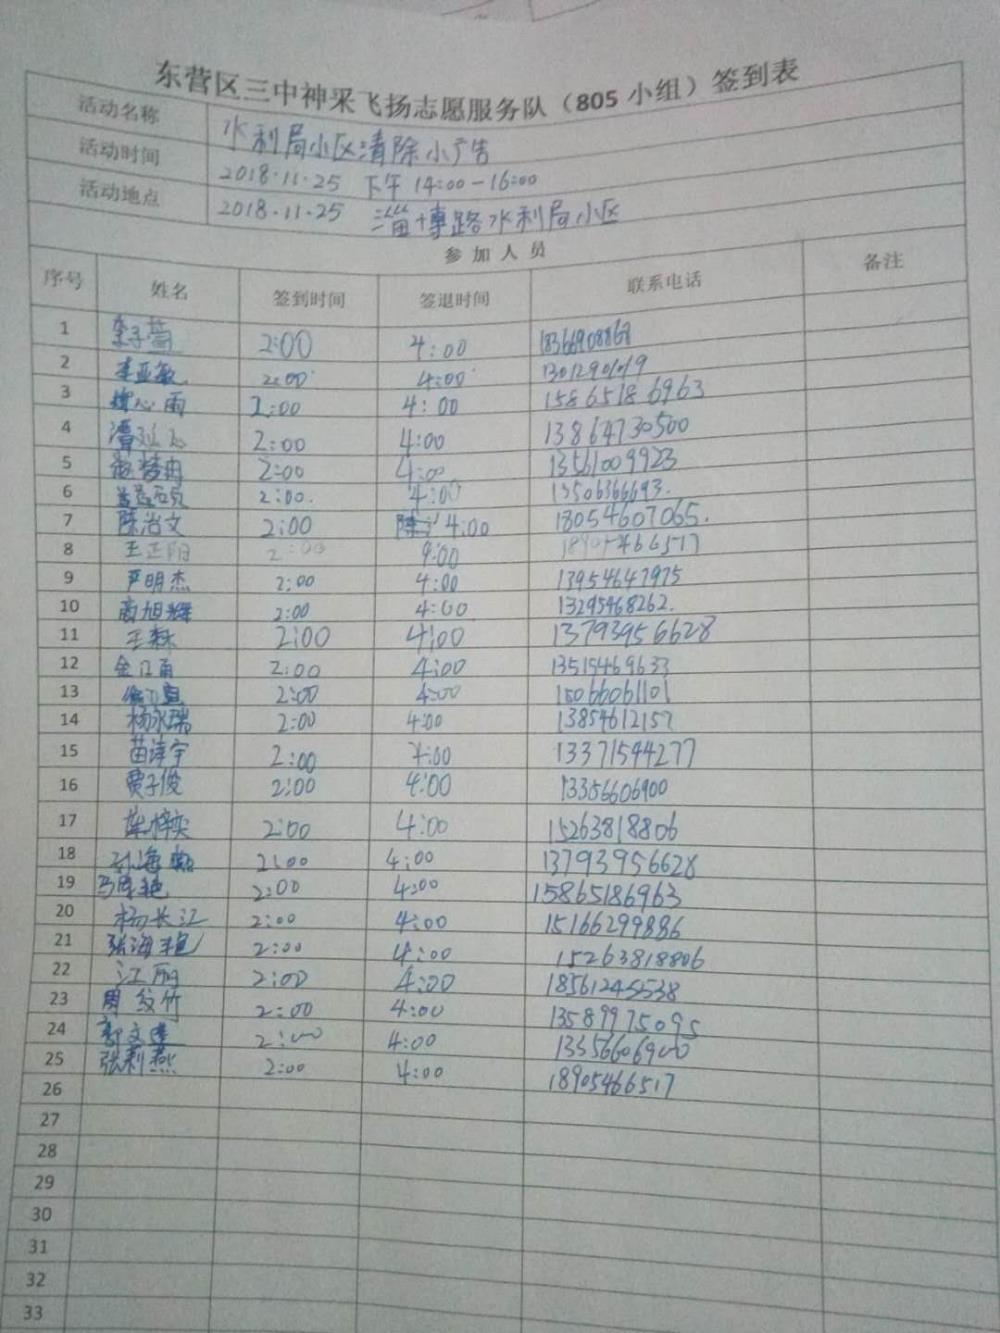 东营区三中神采飞扬志愿服务队（805 小组）签到表
活动名称 水利局小区清除小广告
活动时间 2018.11.25 下午 14:00-16:00
活动地点 2018.11.25 淄博路水利局小区
参加人员
序号 姓名 签到时间 签退时间 联系电话 备注
1 2:00 4:00
2 李亚敏 2:00 4:00
3 心雨 2:00 4:00 15865186963
4 2:00 4:00 13864730500
5 2:00 4:00 13561009923
6 2:00. 4:00 13506366693.
7 陈治文 2:00 4:00 18054607065.
8 王正阳 2:00 4:00
9 严明杰 2:00 4:00 13954647975
10 商旭辉 2:00 4:00 13295468262.
11 王森 2:00 4:00 13793956628
12 2:00 4:00 13515469633
13 2:00 4:00 15066061101
14 杨永瑞 2:00 4:00 13854612157
15 苗淳宇 2:00 4:00 13371544277
16 费子俊 2:00 4:00 13356606900
17 2:00 4:00 15263818806
18 2:00 4:00 13793956628
19 2:00 4:00 15865186963
20 杨长江 2:00 4:00 15166299886
21 张海艳 2:00 4:00 15263818806
22 江丽 2:00 4:00 18561245538
23 周纹竹 2:00 4:00 13589975095
24 2:00 4:00 13356606900
25 张莉燕 2:00 4:00 18905466517
26
27
28
29
30
31
32
33